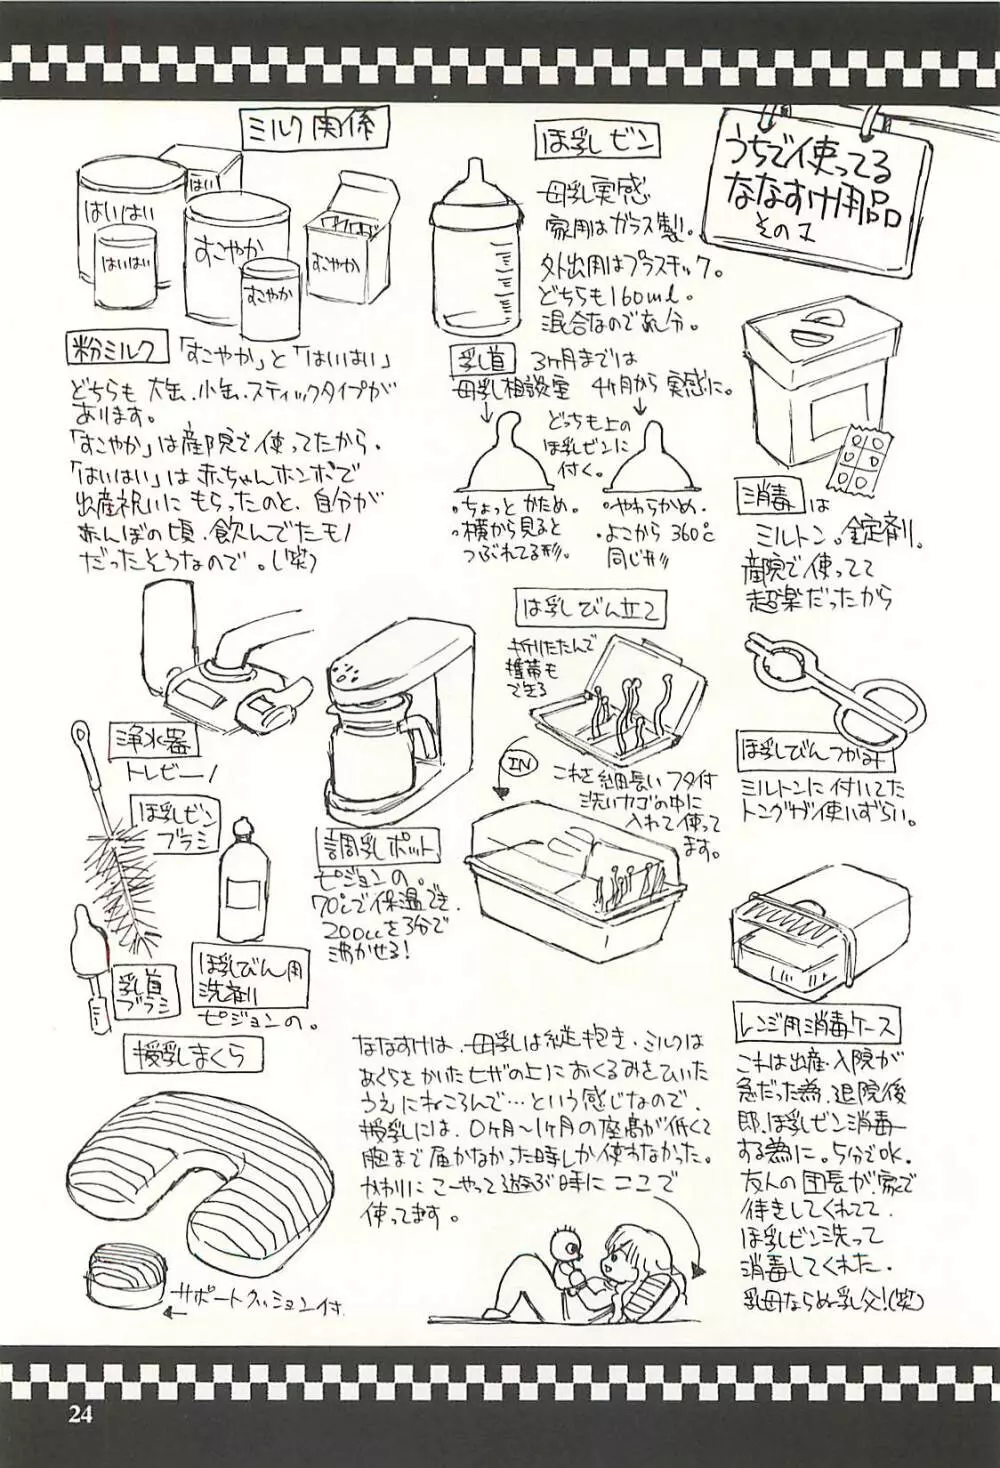 うちで使ってる
ななすけ用品
その1
ミルク関係
はいはい
はい
はいはい
すこやか
すこやか
すこやか
粉ミルク 「すこやか」と「はいはい」
どちらも大缶.小缶.スティックタイプが
あります。
「すこやか」は産院で使ってたから.
「はいはい」は赤ちゃんホンポで
出産祝いにもらったのと、自分が
赤んぼの頃.飲んでたモノ
だったそうなので。(笑)
ほ乳ビン
母乳実感
家用はガラス製。
外出用はプラスチック。
どちらも160ml。
混合なので
乳首 3ヶ月までは
母乳相談室 4ヶ月から実感に。
どっちも上の
ほ乳ビンに
付く。
ちょっとかため。
横から見ると
つぶれてる形。
やわらかめ.
よこから360℃
同じ形
消毒は
ミルトン。錠剤.
産院で使ってて
超楽だったから
ほ乳びんつかみ
ミルトンに付いてた
トングが使いずらい。
ほ乳びん立て
折りたたんで
携帯も
できる
IN
これを細長いフタ付
洗いカゴの中に
入れて使って
ます。
浄水器
トレビーノ
ほ乳ビン
ブラシ
乳首
ブラシ
ほ乳びん用
洗剤
ピジョンの。
調乳ポット
ピジョンの。
70℃で保温でき.
200ccを3分で
沸かせる!
レンジ用消毒ケース
これは出産.入院が
急だった為.退院後
即.ほ乳ビン消毒
する為に。5分でOK.
友人の団長が家で
待きしてくれてて.
ほ乳ビン洗って
消毒してくれた.
乳母ならぬ乳父!(笑)
授乳まくら
サポートクッション付.
ななすけは.母乳は縦抱き.ミルクは
あぐらをかいたヒザの上におくるみをひいた
うえにねころんで…という感じなので.
授乳には.0ヶ月〜1ヶ月の座高が低くて
胸まで届かなかった時しか使わなかった。
かわりにこーやって遊ぶ時にここで
使ってます。
24